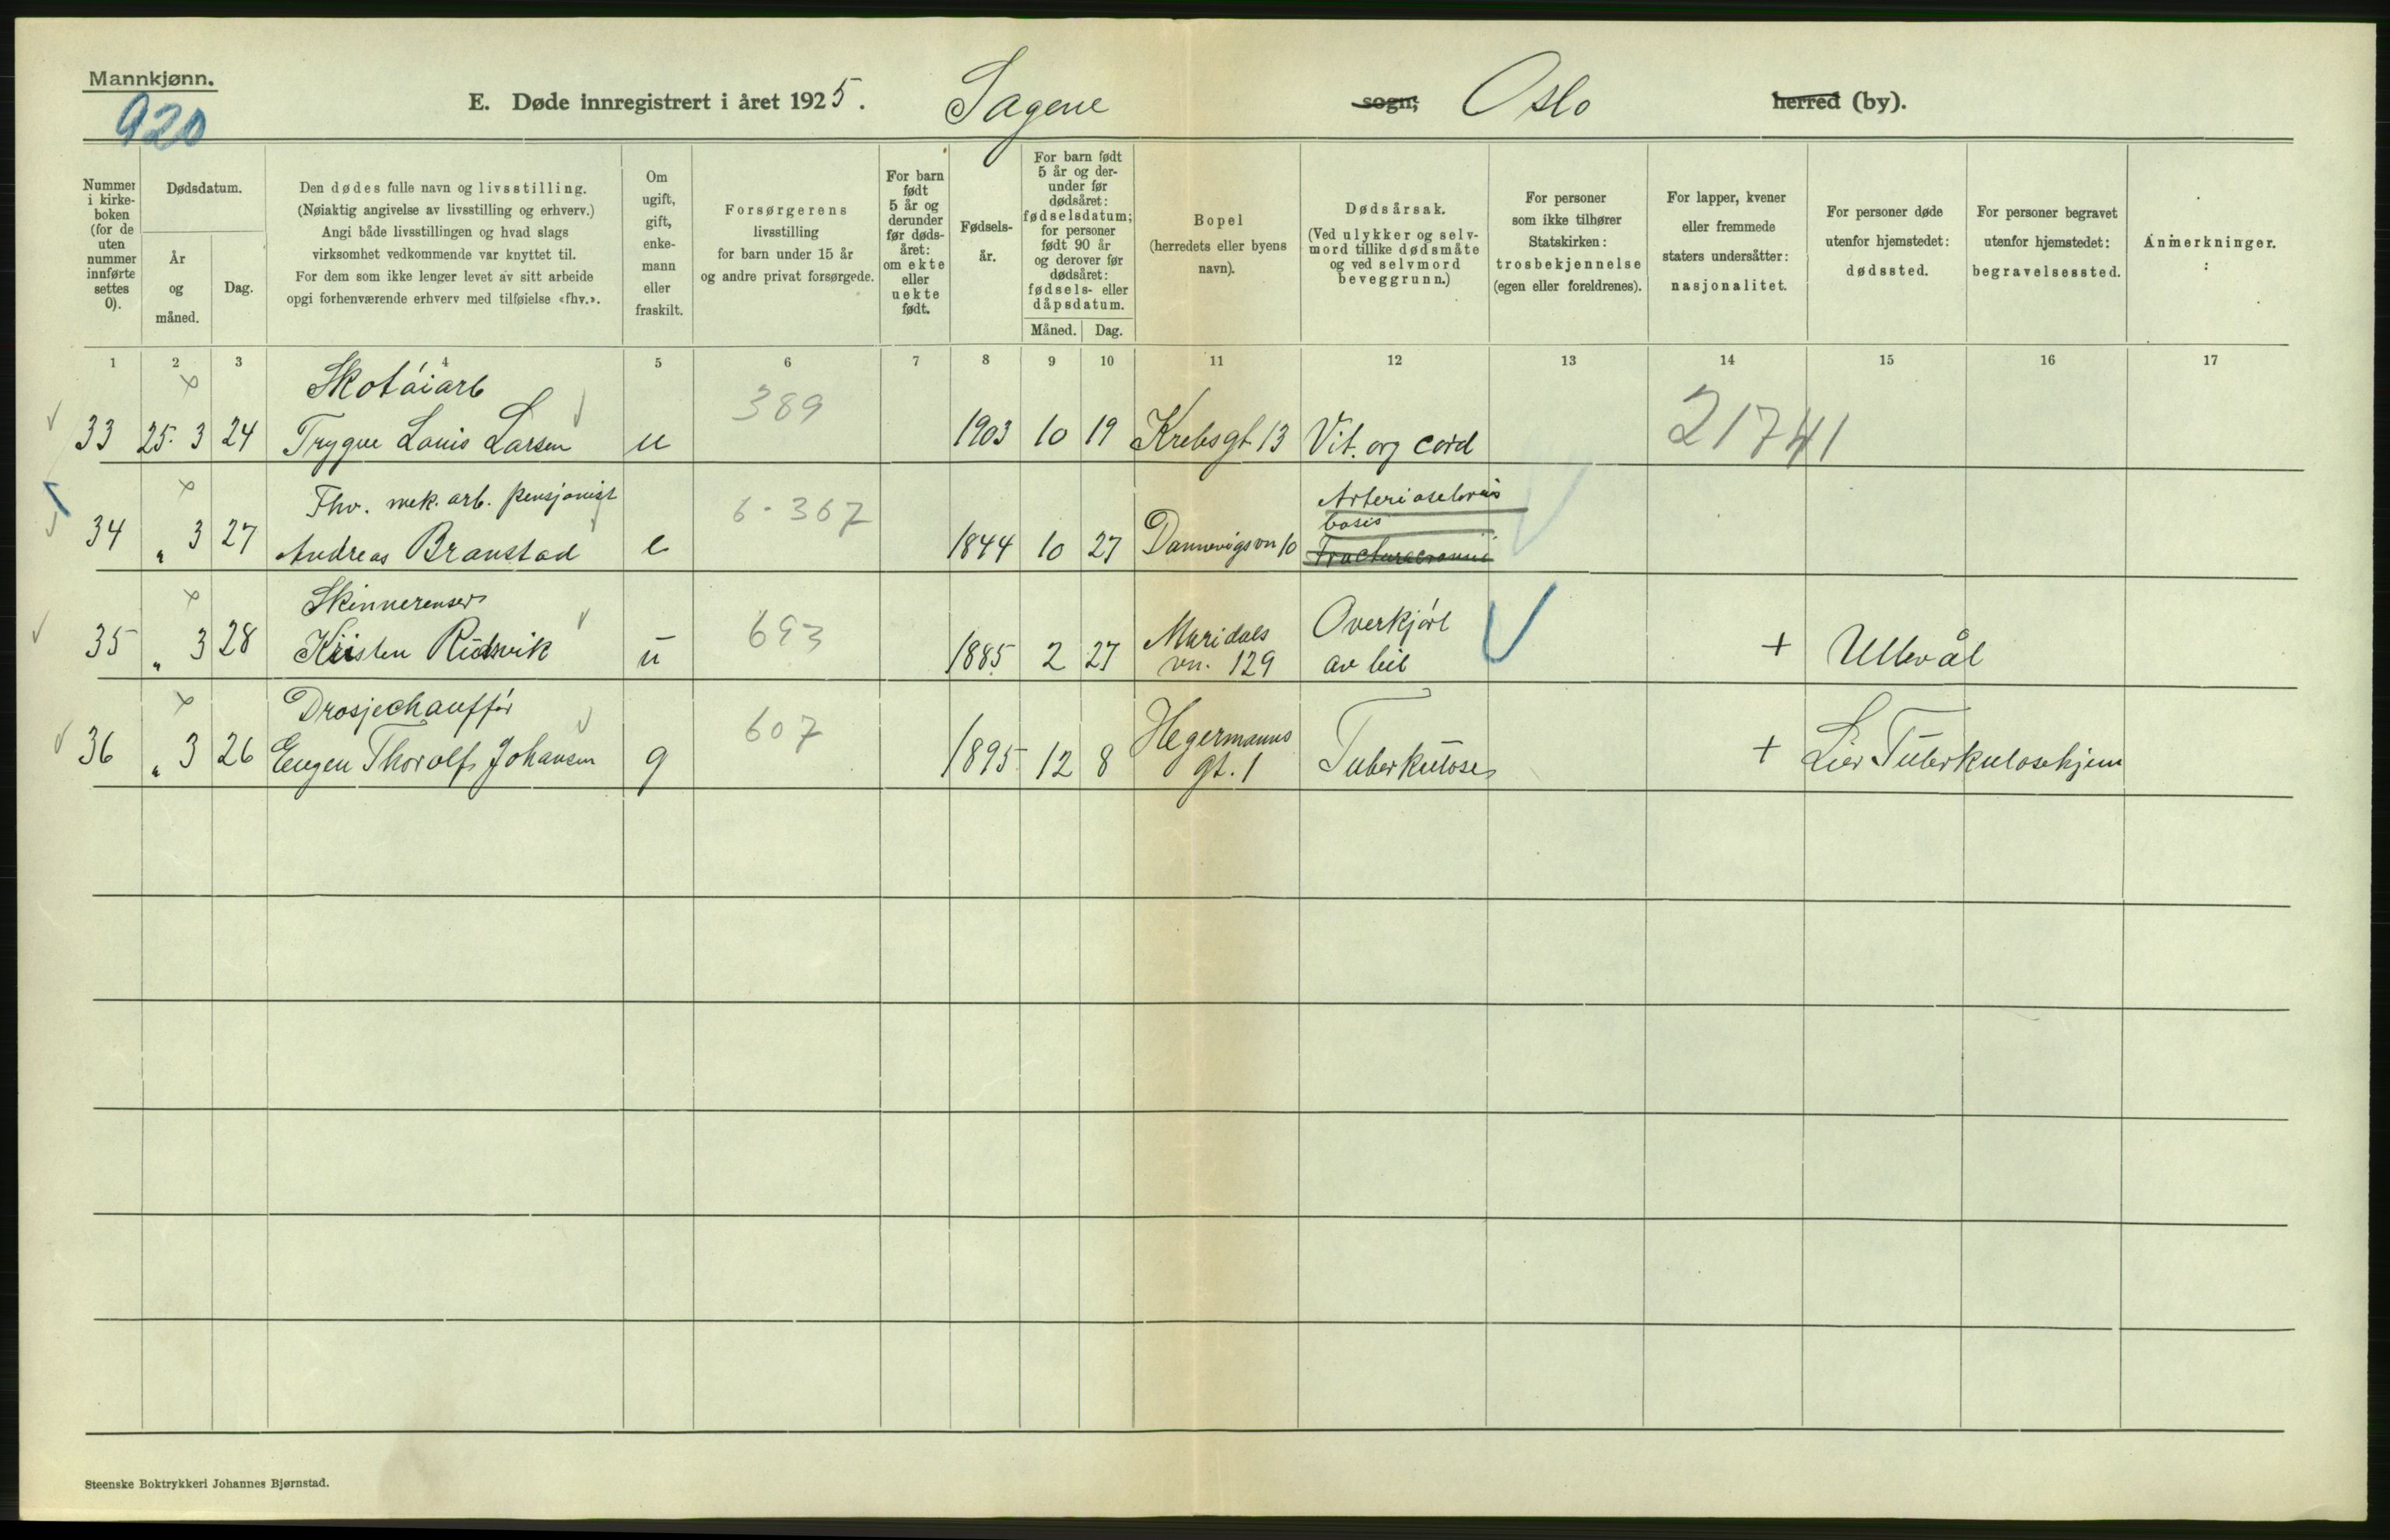 Mannkjønn.
920
E. Døde innregistrert i året 1925. Sagene sogn; Oslo herred (by).
Nummer i kirke- boken (for de uten nummer innførte settes 0).
Dødsdatum.
År og måned.
Dag.
Den dødes fulle navn og livsstilling.
(Nøiaktig angivelse av livsstilling og erhverv.)
Angi både livsstillingen og hvad slags
virksomhet vedkommende var knyttet til.
For dem som ikke lenger levet av sitt arbeide
opgi forhenværende erhverv med tilføielse «fhv.».
Om ugift, gift, enke- mann eller fraskilt.
Forsørgerens
livsstilling
for barn under 15 år
og andre privat forsørgede.
For barn født 5 år og derunder før døds- året: om ekte eller uekte født.
Fødsels- år.
For barn født 5 år og der- under før dødsåret: fødselsdatum; for personer født 90 år og derover før dødsåret: fødsels- eller dåpsdatum.
Måned. Dag.
Bopel
(herredets eller byens
navn).
Dødsårsak.
(Ved ulykker og selv-
mord tillike dødsmåte
og ved selvmord
beveggrunn.)
For personer
som ikke tilhører
Statskirken:
trosbekjennelse
(egen eller foreldrenes).
For lapper, kvener
eller fremmede
staters undersåtter:
nasjonalitet.
For personer døde
utenfor hjemstedet:
dødssted.
For personer begravet
utenfor hjemstedet:
begravelsessted.
Anmerkninger.
1 2 3 4 5 6 7 8 9 10 11 12 13 14 15 16 17
Skotøiarb
33 25. 3 24 Trygve Louis Larsen u 389 1903 10 19 Krebsgt 13 Vit. org cord 21741
Fhv. mek. arb. pensjonist
34 " 3 27 Andreas Branstad e 6-367 1844 10 27 10
Skinnerenser
35 " 3 28 Kristen u 693 1885 2 27 Maridals vn. 129 Overkjørt av bil + Ullevål
Drosjechauffør
36 " 3 26 Eugen Thorolf Johansen g 607 1895 12 8 Hegermanns gt. 1 Tuberkulose + Lier Tuberkulosehjem
Steenske Boktrykkeri Johannes Bjørnstad.